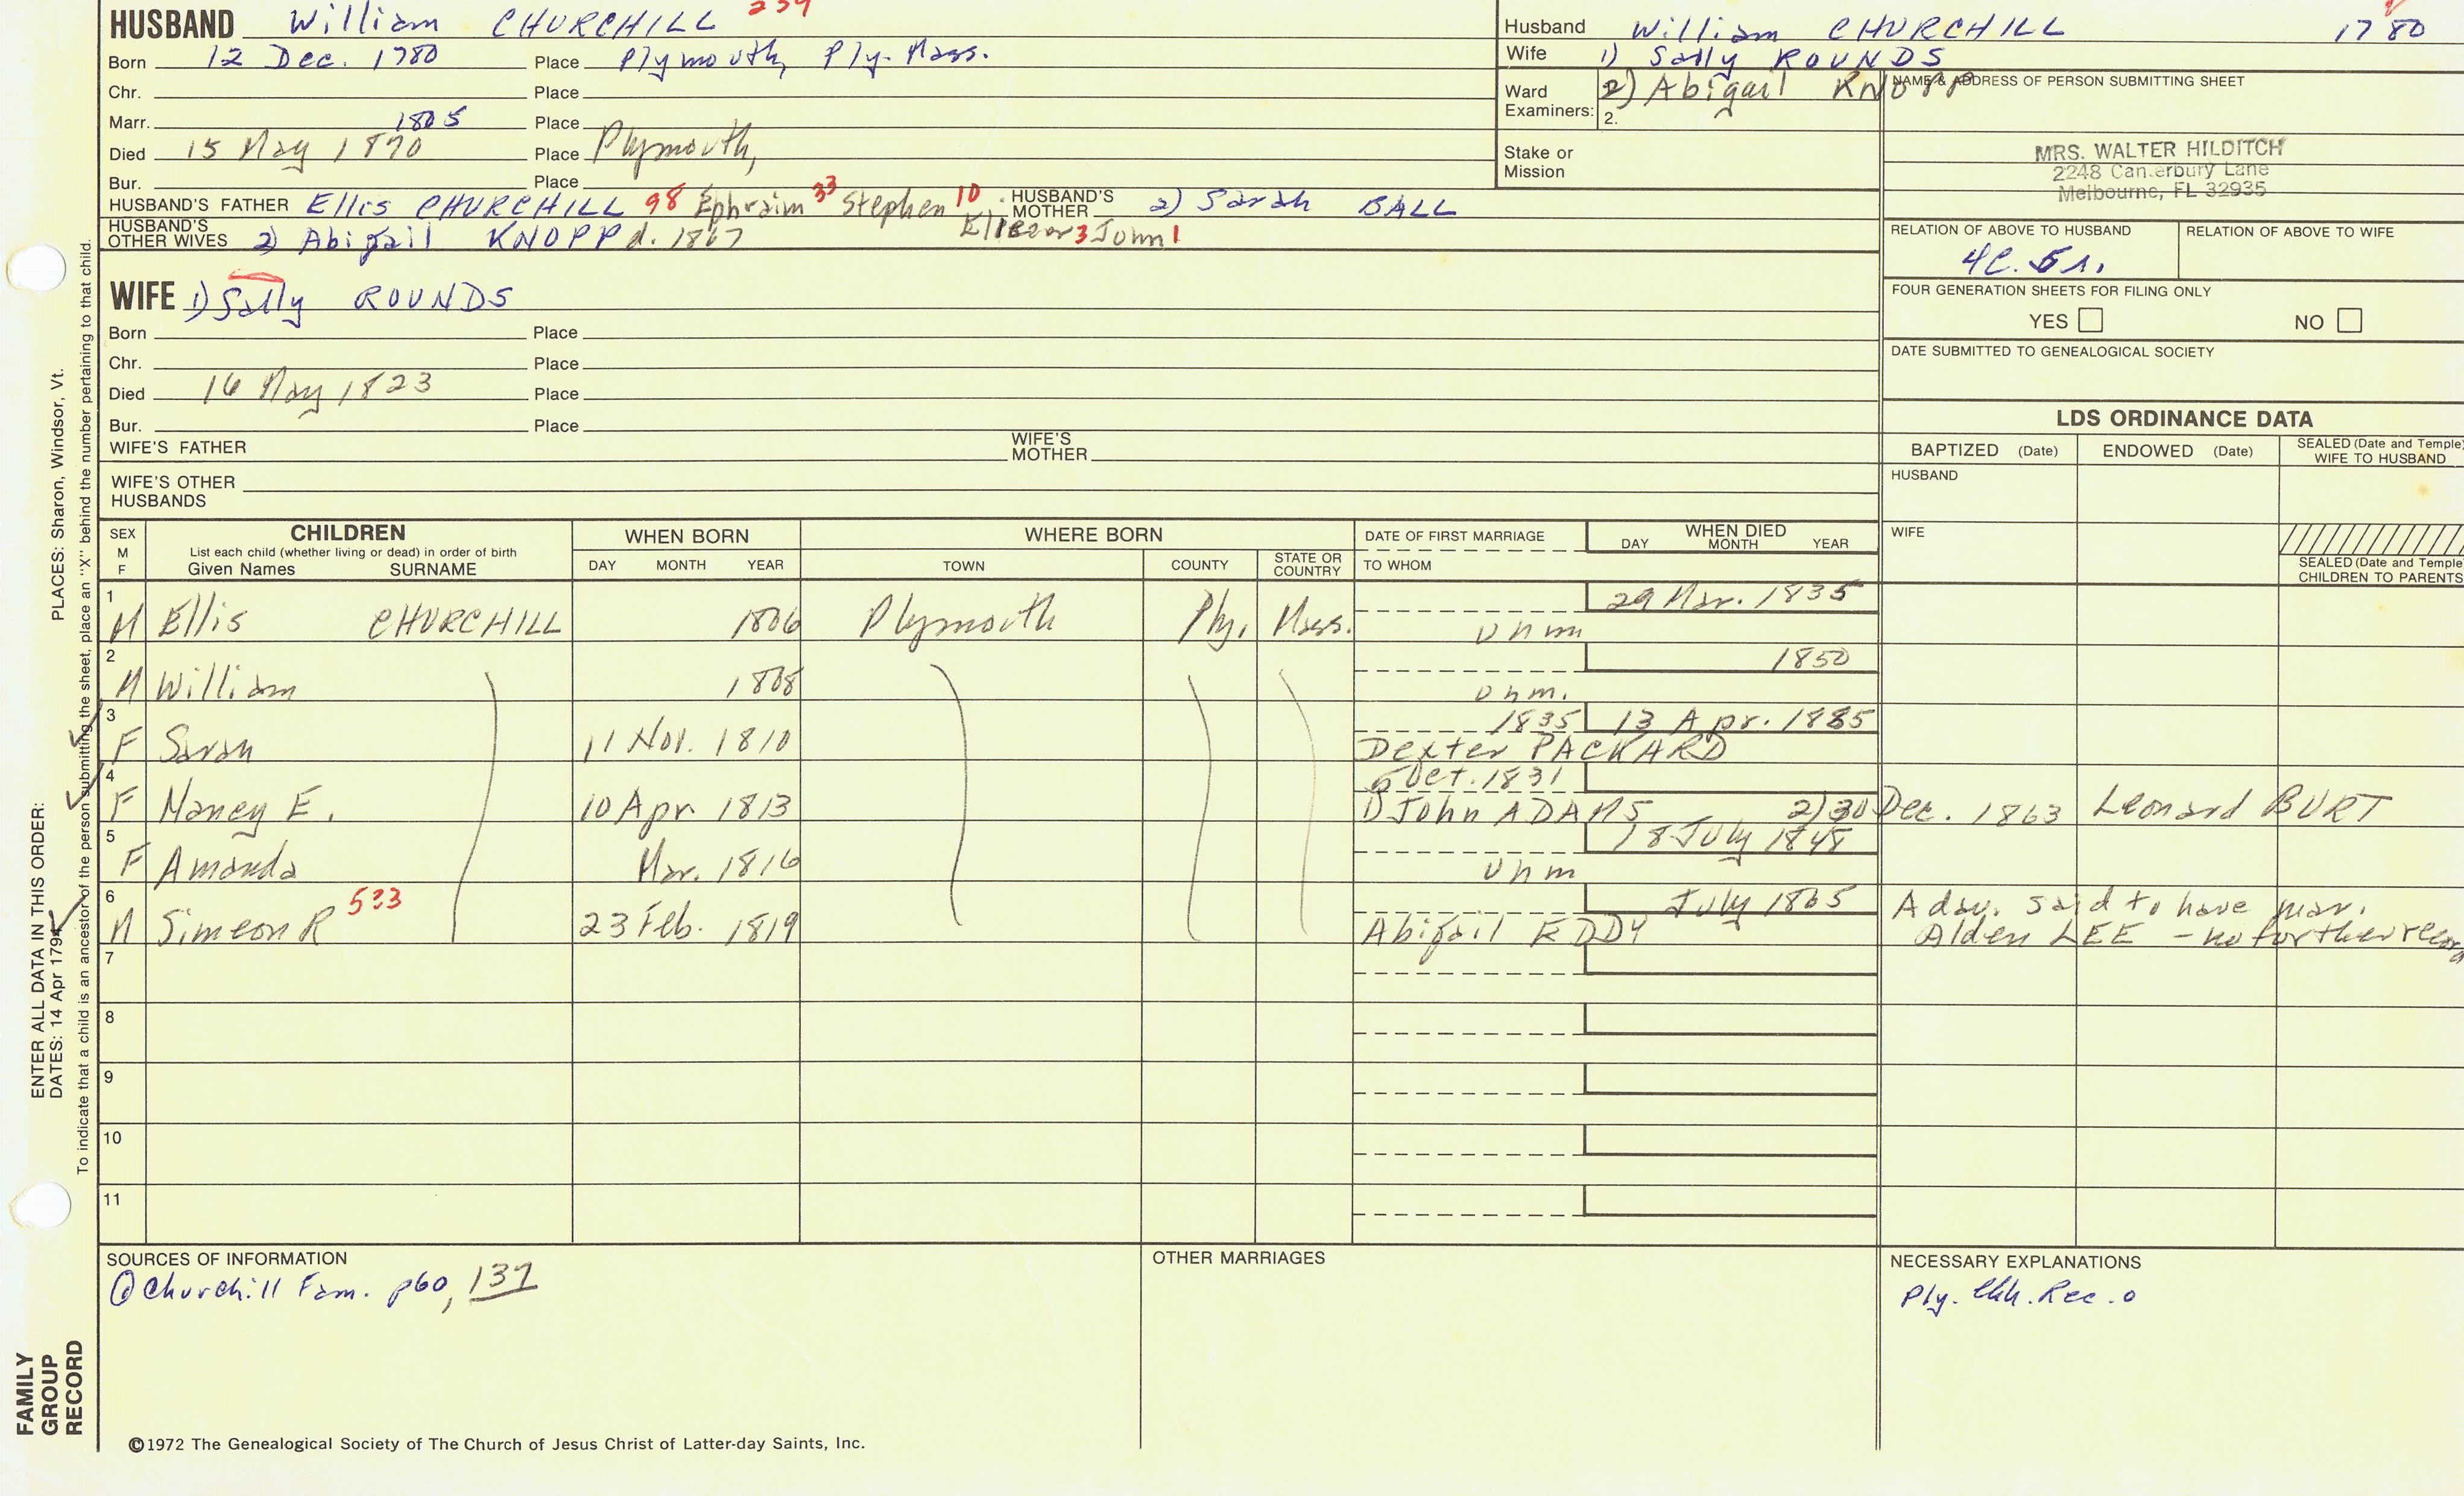 HUSBAND William CHURCHILL 239
Born 12 Dec. 1780 Place Plymouth, Ply. Mass.
Chr. Place
Marr. 1805 Place
Died 15 May 1870 Place Plymouth,
Bur. Place
HUSBAND'S FATHER Ellis CHURCHILL 98 Ephraim 33 Stephen 10 HUSBAND'S MOTHER 2) Sarah BALL
Eliezer 3 John 1
HUSBAND'S OTHER WIVES 2) Abigail KNOPP d. 1867
Husband William CHURCHILL 1780
Wife 1) Sally ROUNDS
Ward Examiners: 2) Abigail KNOPP
2.
Stake or Mission
NAME & ADDRESS OF PERSON SUBMITTING SHEET
MRS. WALTER HILDITCH
2248 Canterbury Lane
Melbourne, FL 32935
RELATION OF ABOVE TO HUSBAND RELATION OF ABOVE TO WIFE
4C. 5r.
FOUR GENERATION SHEETS FOR FILING ONLY
YES NO
DATE SUBMITTED TO GENEALOGICAL SOCIETY
WIFE 1) Sally ROUNDS
Born Place
Chr. Place
Died 16 May 1823 Place
Bur. Place
WIFE'S FATHER WIFE'S MOTHER
WIFE'S OTHER HUSBANDS
LDS ORDINANCE DATA
BAPTIZED (Date) ENDOWED (Date) SEALED (Date and Temple) WIFE TO HUSBAND
HUSBAND
WIFE
SEALED (Date and Temple CHILDREN TO PARENTS
SEX M F
CHILDREN
List each child (whether living or dead) in order of birth
Given Names SURNAME
WHEN BORN
DAY MONTH YEAR
WHERE BORN
TOWN COUNTY STATE OR COUNTRY
DATE OF FIRST MARRIAGE
TO WHOM
WHEN DIED
DAY MONTH YEAR
1 29 Mar. 1835
M Ellis CHURCHILL 1806 Plymouth Ply. Mass. unm
2 1850
M William 1808 unm.
3 1835 13 Apr. 1885
F Sarah 11 Nov. 1810 Dexter PACKARD
4 6 Oct. 1831
F Nancy E. 10 Apr. 1813 1) John ADAMS 2) 30 Dec. 1863 Leonard BURT
5 18 July 1848
F Amanda Mar. 1816 unm
6 July 1865 A dau. said to have mar.
M Simeon R 533 23 Feb. 1819 Abigail EDDY Alden LEE - no further record
7
8
9
10
11
SOURCES OF INFORMATION
@ Churchill Fam. p60, 137
OTHER MARRIAGES
NECESSARY EXPLANATIONS
Ply. Chh. Rec. o
©1972 The Genealogical Society of The Church of Jesus Christ of Latter-day Saints, Inc.
FAMILY GROUP RECORD
ENTER ALL DATA IN THIS ORDER:
DATES: 14 Apr 1794 PLACES: Sharon, Windsor, Vt.
To indicate that a child is an ancestor of the person submitting the sheet, place an "X" behind the number pertaining to that child.